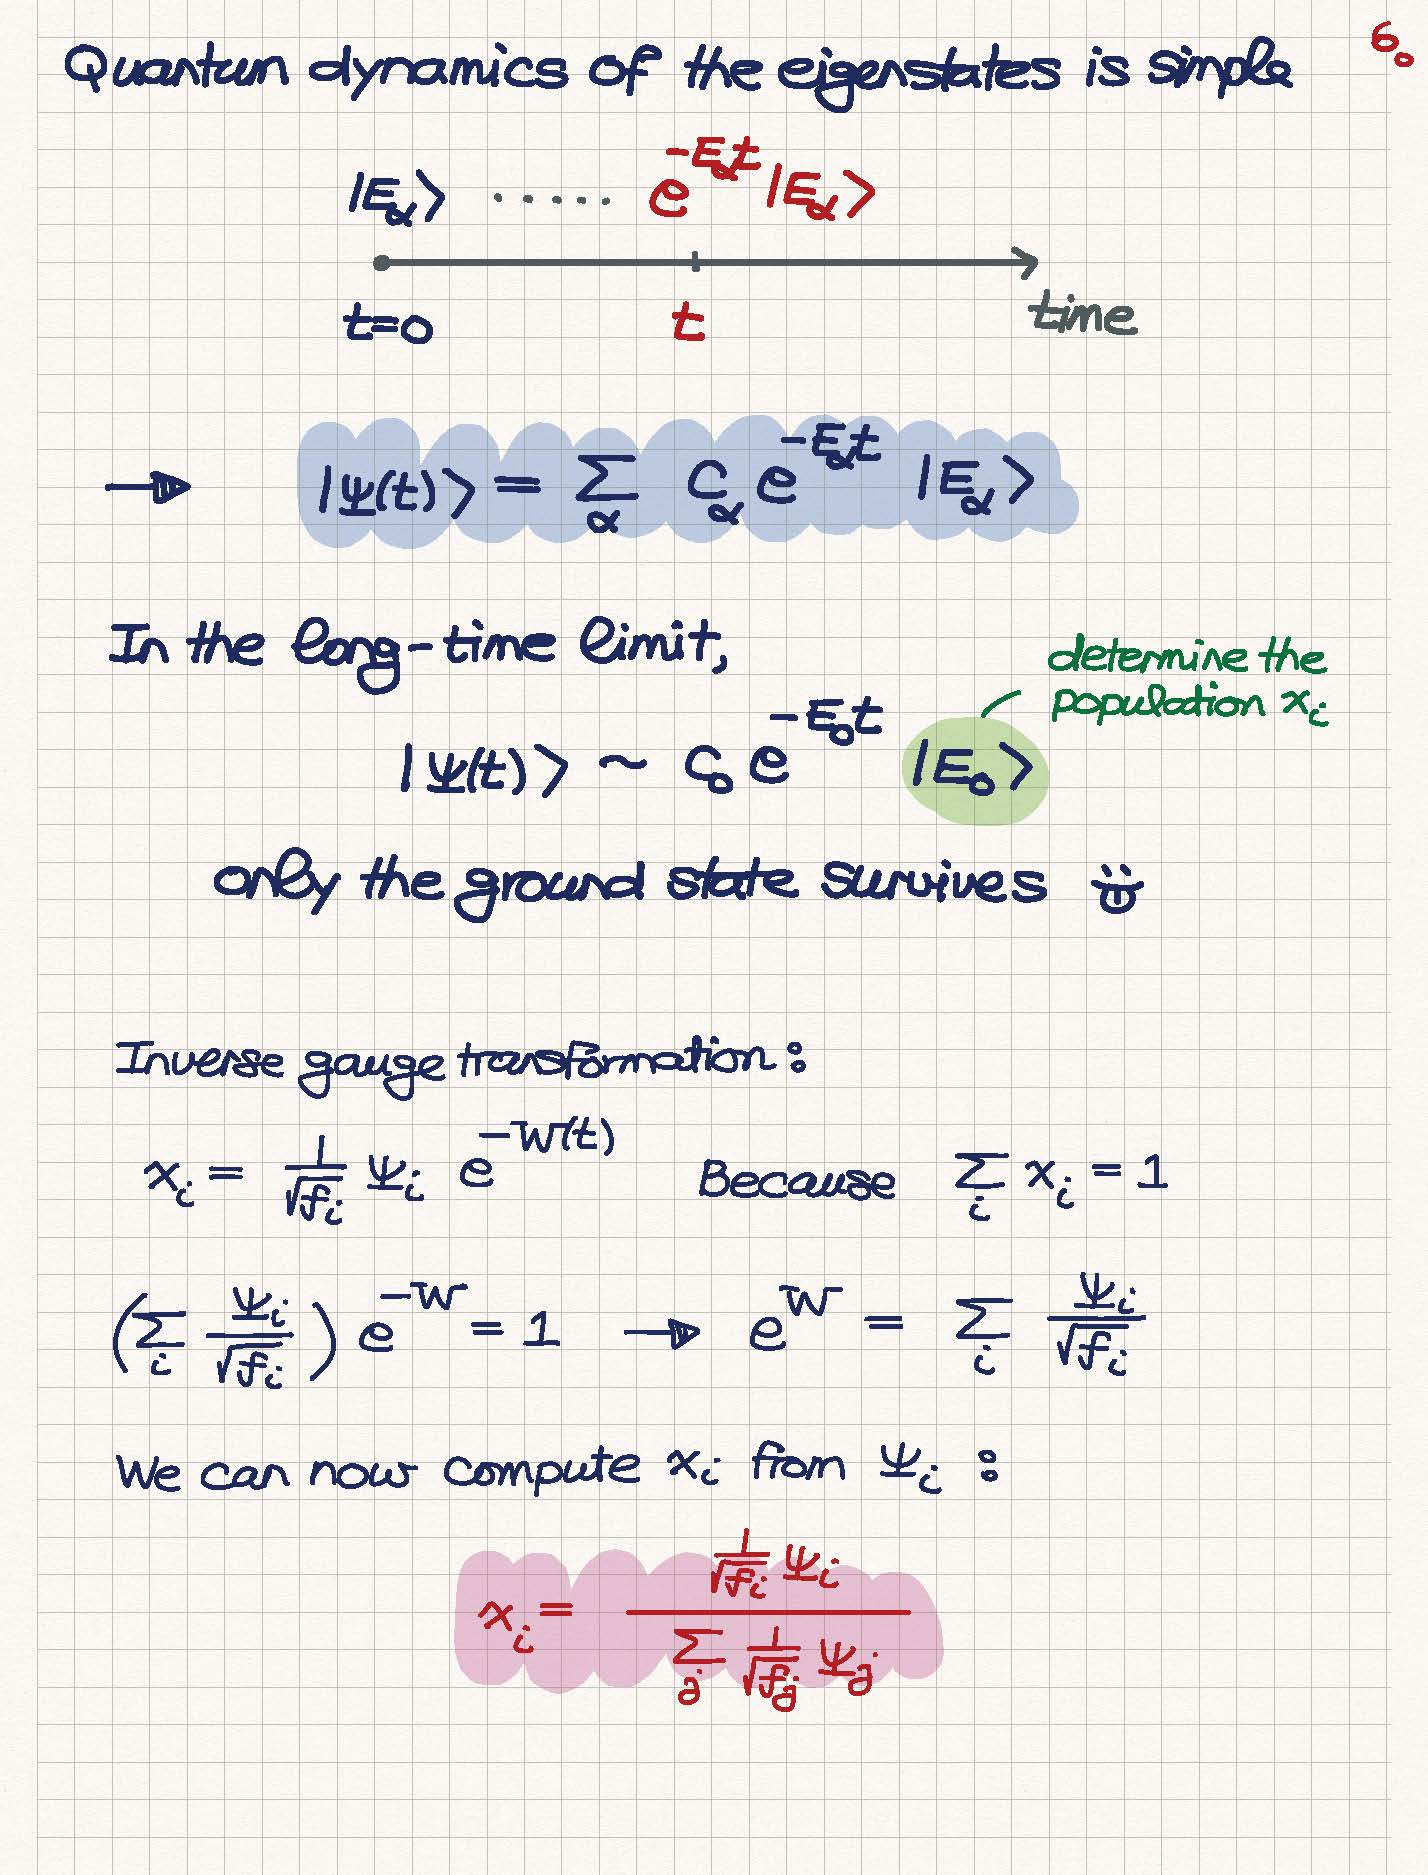 Quantum dynamics of the eigenstates is simple
6.
|E_α⟩ ...... e^{-E_α t} |E_α⟩
t=0 t time
→ |Ψ(t)⟩ = Σ_α C_α e^{-E_α t} |E_α⟩
In the long-time limit,
determine the
population x_i
|Ψ(t)⟩ ~ C_0 e^{-E_0 t} |E_0⟩
only the ground state survives
Inverse gauge transformation:
x_i = 1/√f_i Ψ_i e^{-W(t)} Because Σ_i x_i = 1
(Σ_i Ψ_i/√f_i) e^{-W} = 1 → e^W = Σ_i Ψ_i/√f_i
We can now compute x_i from Ψ_i :
x_i = (1/√f_i Ψ_i) / (Σ_j 1/√f_j Ψ_j)